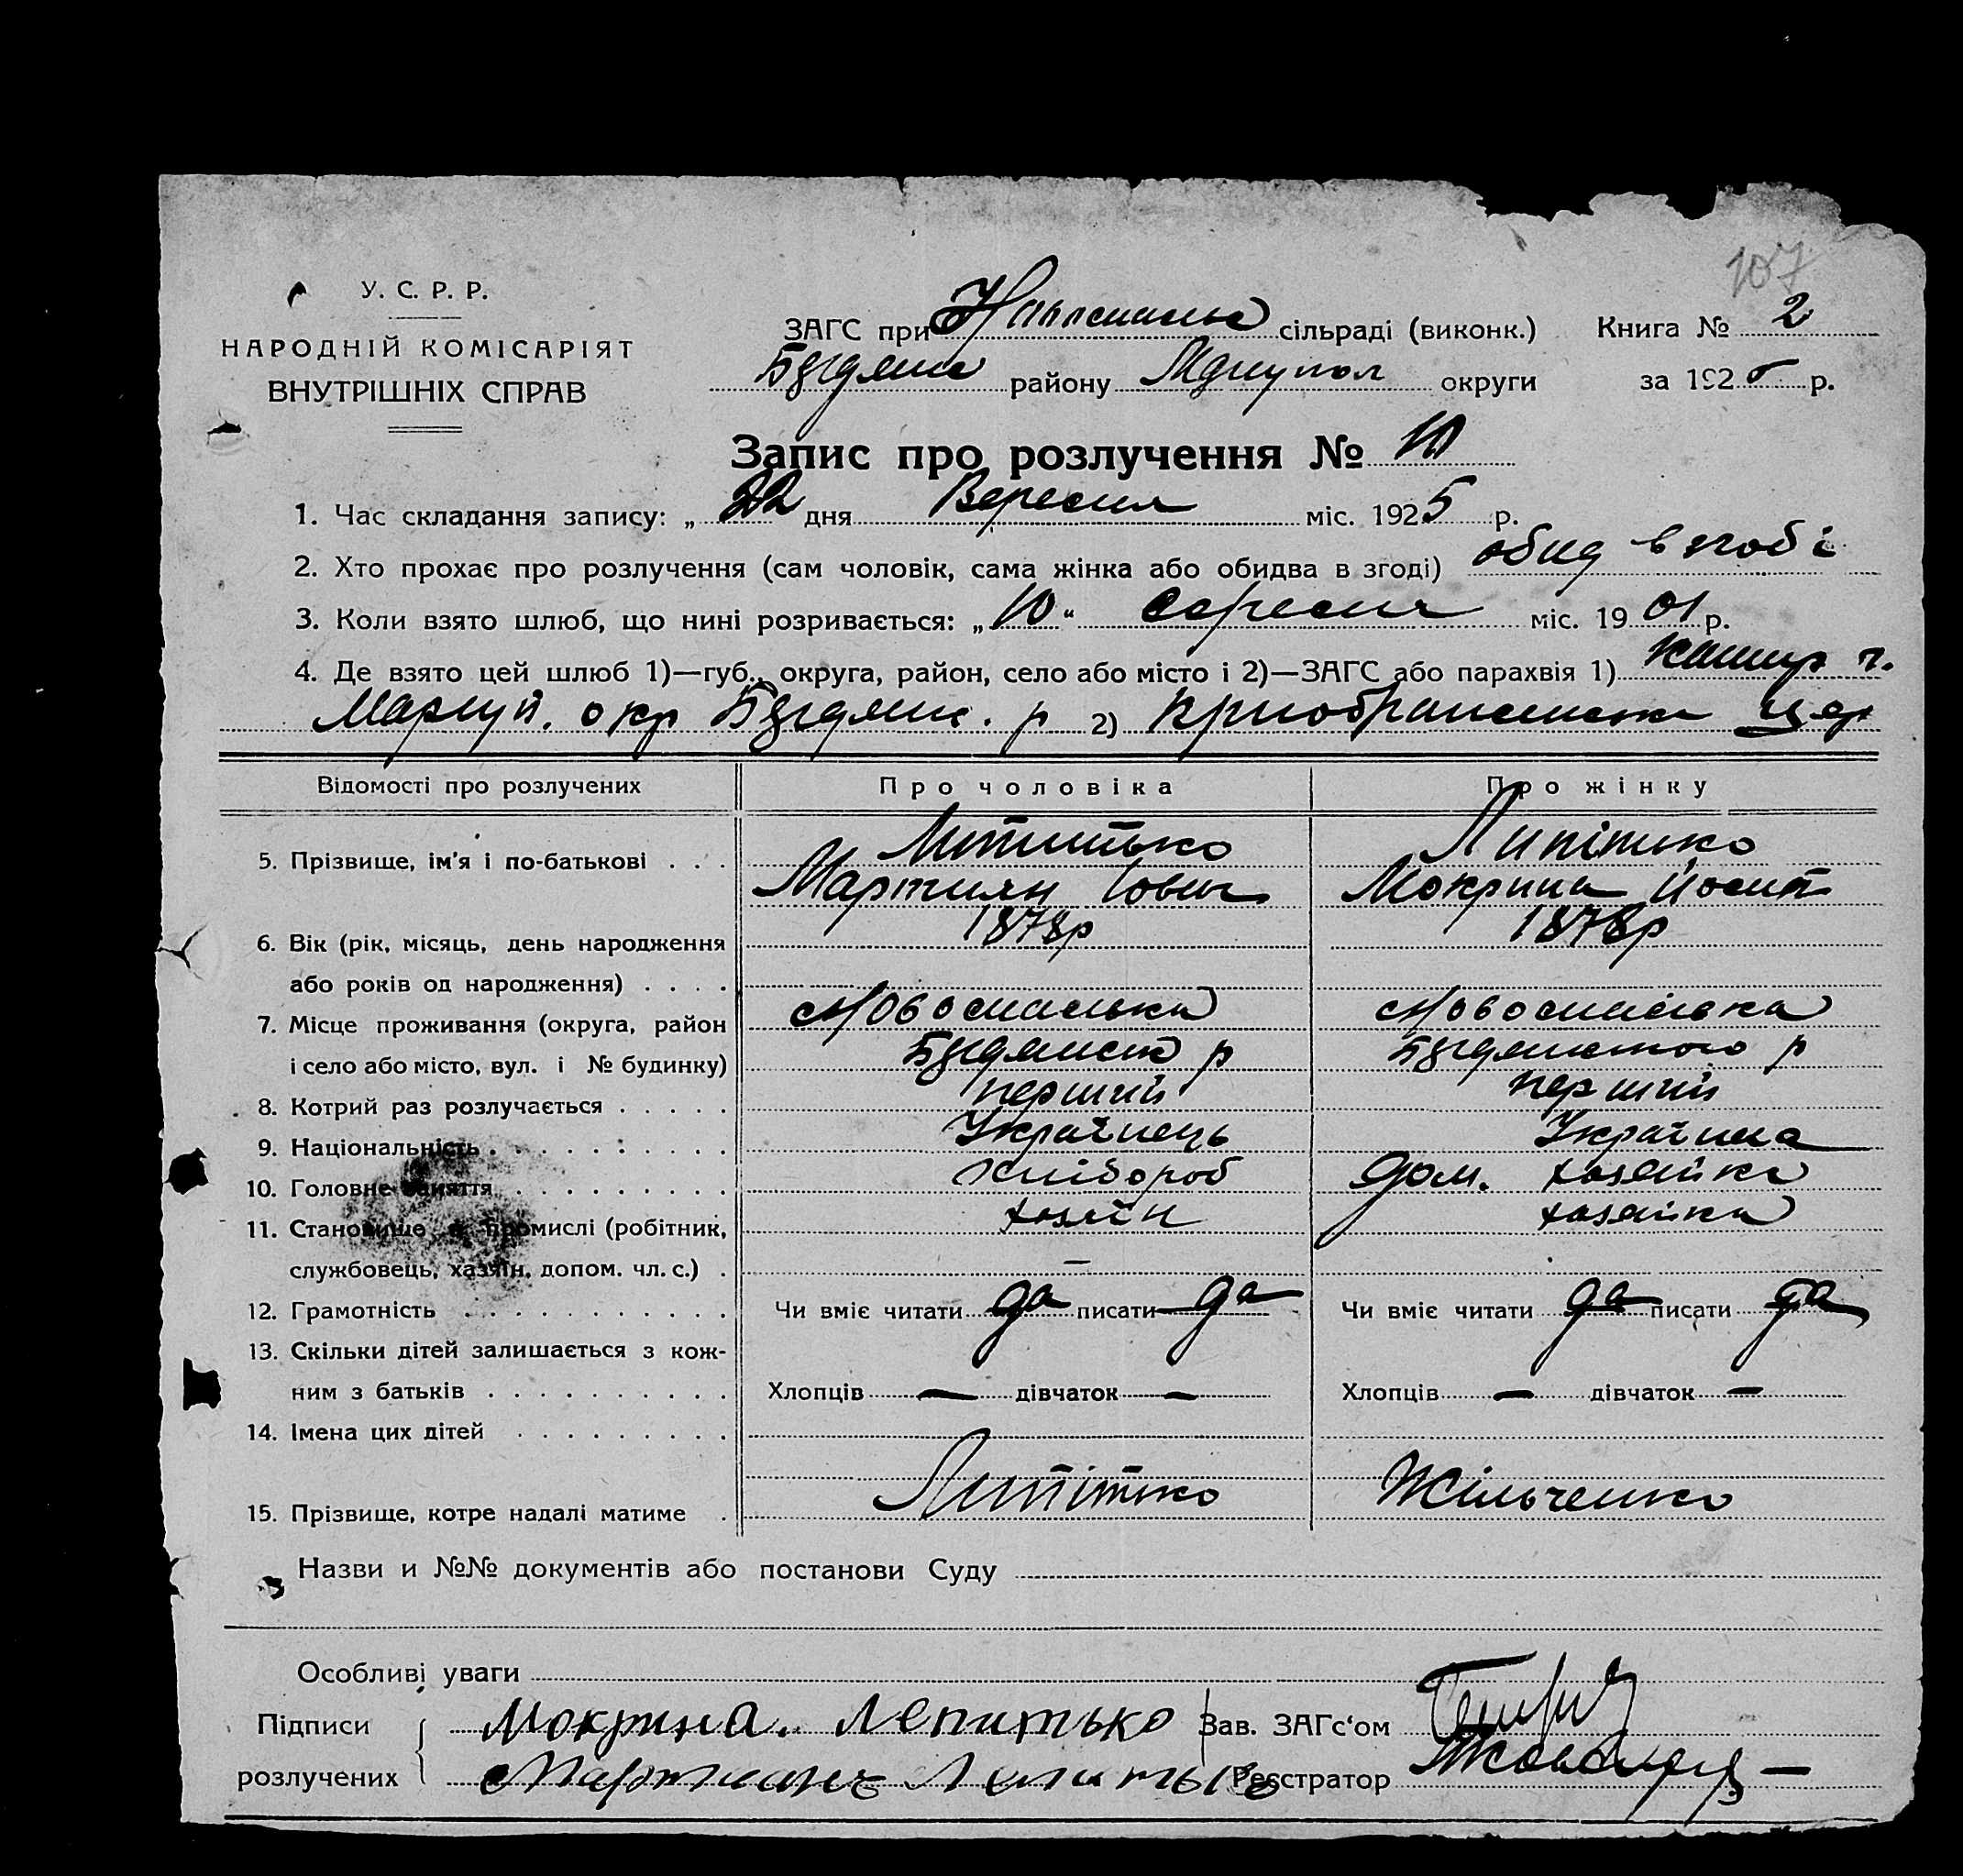 107
У. С. Р. Р.
НАРОДНІЙ КОМІСАРІЯТ
ВНУТРІШНІХ СПРАВ
ЗАГС при сільраді (виконк.) Книга № 2
району Маріупол округи за 1925 р.
Запис про розлучення № 10
1. Час складання запису: „ 22 дня Вересня міс. 1925 р.
2. Хто прохає про розлучення (сам чоловік, сама жінка або обидва в згоді) обид в згоді
3. Коли взято шлюб, що нині розривається: „ 10 “ Вересня міс. 19 01 р.
4. Де взято цей шлюб 1)—губ., округа, район, село або місто і 2)—ЗАГС або парахвія 1)
Маріуп. окр р 2) цер
Відомості про розлучених Про чоловіка Про жінку
5. Прізвище, ім'я і по-батькові . . . Липитько Липітько
Мартиян Іович Мокрина Йосип
6. Вік (рік, місяць, день народження 1878р 1878р
або років од народження) . . . .
7. Місце проживання (округа, район Новоспаська Новоспаська
і село або місто, вул. і № будинку) р р
8. Котрий раз розлучається . . . . . перший перший
9. Національність . . . . . . . . . Українець Українка
10. Головне заняття . . . . . . . . . хлібороб дом. хазяйка
11. Становище в промислі (робітник, хазяїн хазяйка
службовець, хазяїн, допом. чл. с.) . —
12. Грамотність . . . . . . . . . . . Чи вміє читати да писати да Чи вміє читати да писати да
13. Скільки дітей залишається з кож-
ним з батьків . . . . . . . . . . Хлопців — дівчаток — Хлопців — дівчаток —
14. Імена цих дітей . . . . . . . . .
15. Прізвище, котре надалі матиме . Липітько Жільченко
Назви и №№ документів або постанови Суду
Особливі уваги
Підписи Мокрина. Лепитько Зав. ЗАГс‘ом
розлучених Мартиан Лепитько Реєстратор